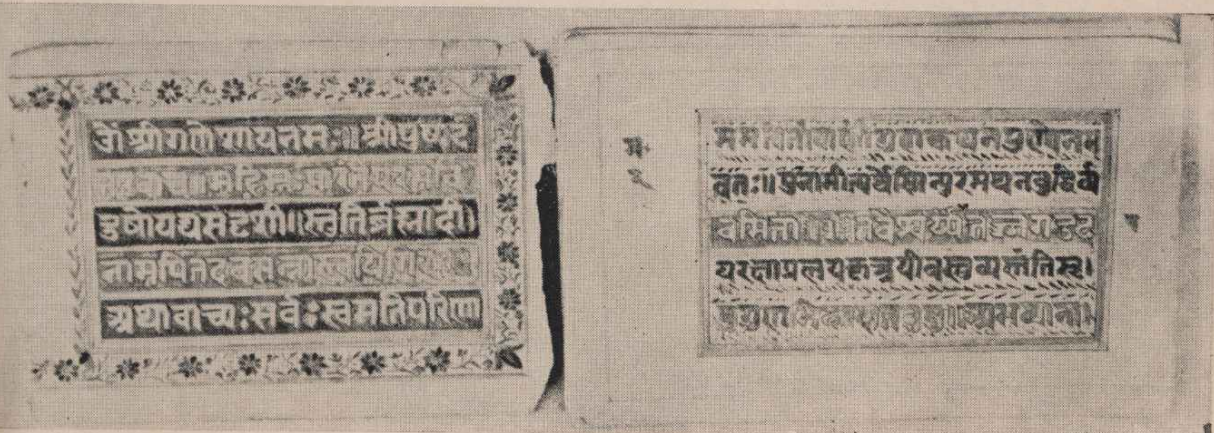 ॐ श्रीगणेशायनमः॥श्रीपुष्पदं
तउवाच॥महिम्नः पारंतेपरमवि
दुषोयद्यसदृशी॥स्तुतिर्ब्रह्मादी।
नामपितदवसन्नास्त्वयिगिरः
अथावाच्यः सर्वः स्वमतिपरिणा
म.
ममत्वेतांवाणींगुणकथनपुण्येनभ
वतः॥पुनामीत्यर्थेस्मिन्पुरमथनबुद्धिर्व्य
वसिता॥ तवैश्वर्यंयत्तज्जगदुद
यरक्षाप्रलयकृत्त्रयीवस्तुव्यस्तंतिसृ।
अभव्याना।